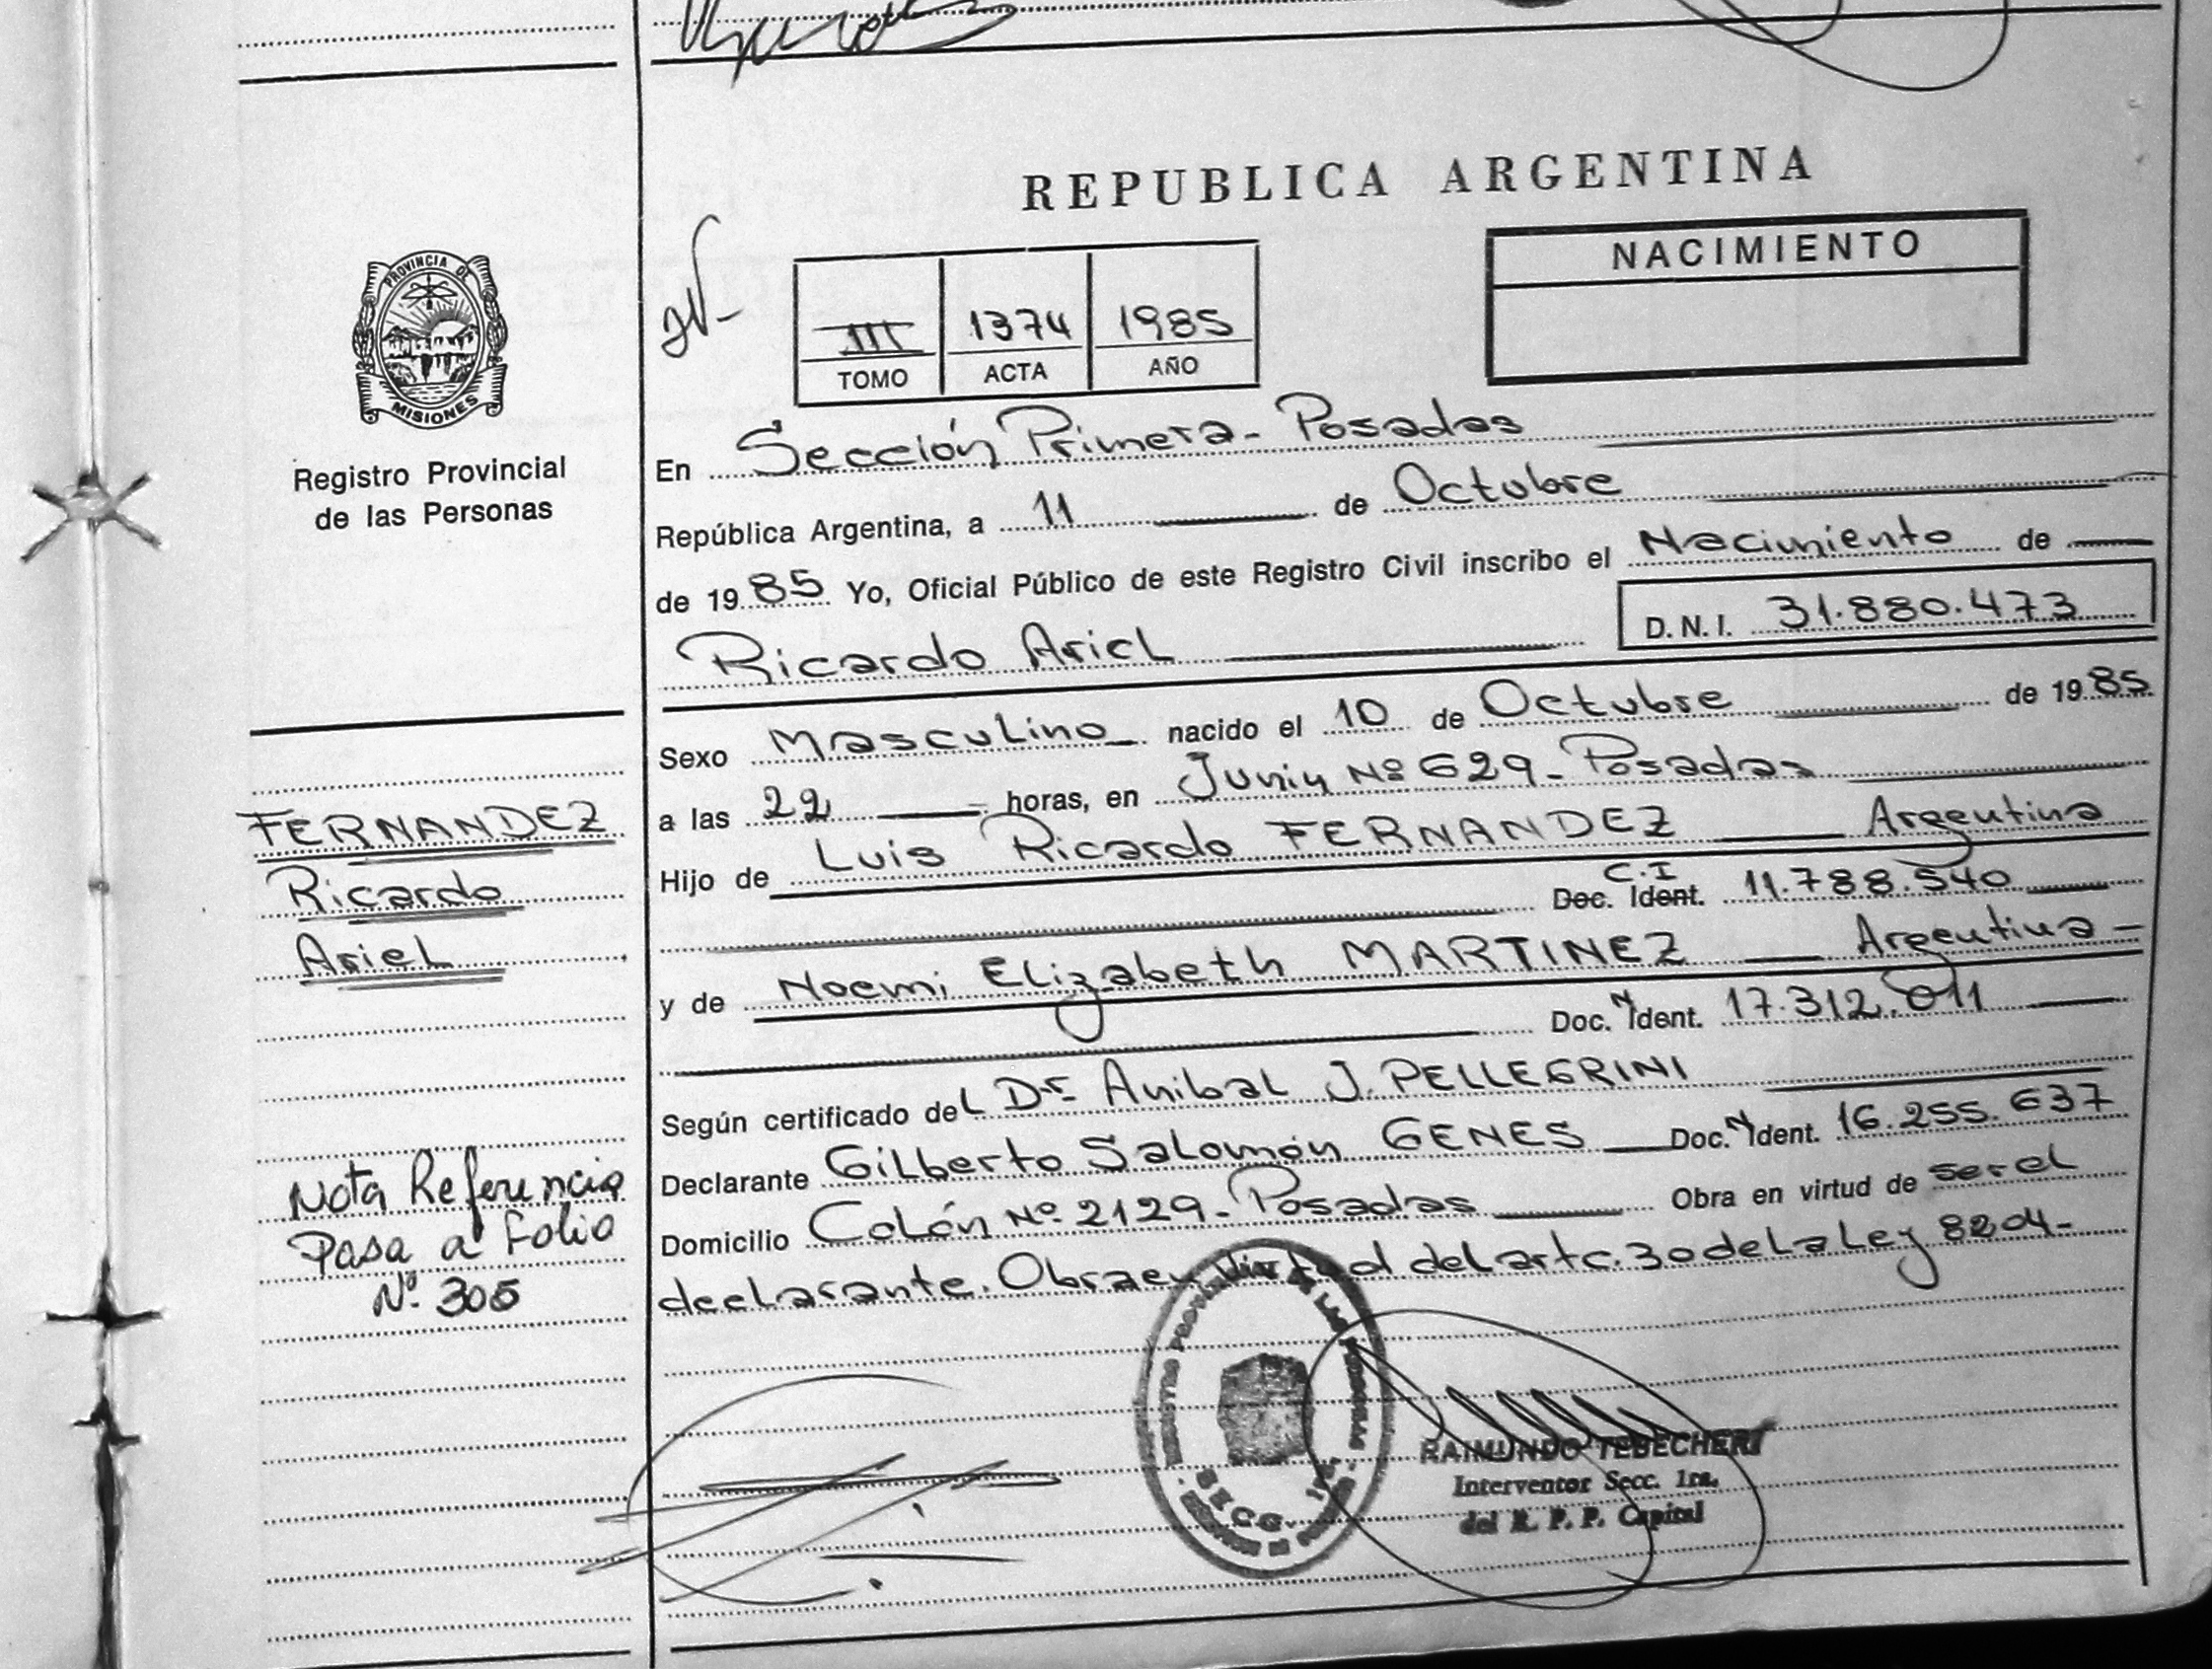 REPUBLICA ARGENTINA
PROVINCIA DE
MISIONES
Registro Provincial
de las Personas
III 1374 1985
TOMO ACTA AÑO
NACIMIENTO
En Sección Primera - Posadas
República Argentina, a 11 de Octubre
de 1985 Yo, Oficial Público de este Registro Civil inscribo el Nacimiento de
Ricardo Ariel D.N.I. 31.880.473
Sexo Masculino nacido el 10 de Octubre de 1985
a las 22 horas, en Junin Nº 629 - Posadas
Hijo de Luis Ricardo FERNANDEZ Argentina
C.I
Doc. Ident. 11.788.540
y de Noemi Elizabeth MARTINEZ Argentina -
Doc. N Ident. 17.312.011
Según certificado del Dr. Anibal J. PELLEGRINI
Declarante Gilberto Salomón GENES Doc. N Ident. 16.255.637
Domicilio Colón Nº 2129 - Posadas Obra en virtud de ser el
declarante. Obra en virtud del artc. 30 de la Ley 8204 -
FERNANDEZ
Ricardo
Ariel
Nota Referencia
Pasa a Folio
Nº 305
SECC. 1ra.
RAIMUNDO TEBECHERI
Interventor Secc. 1ra.
del R. P. P. Capital